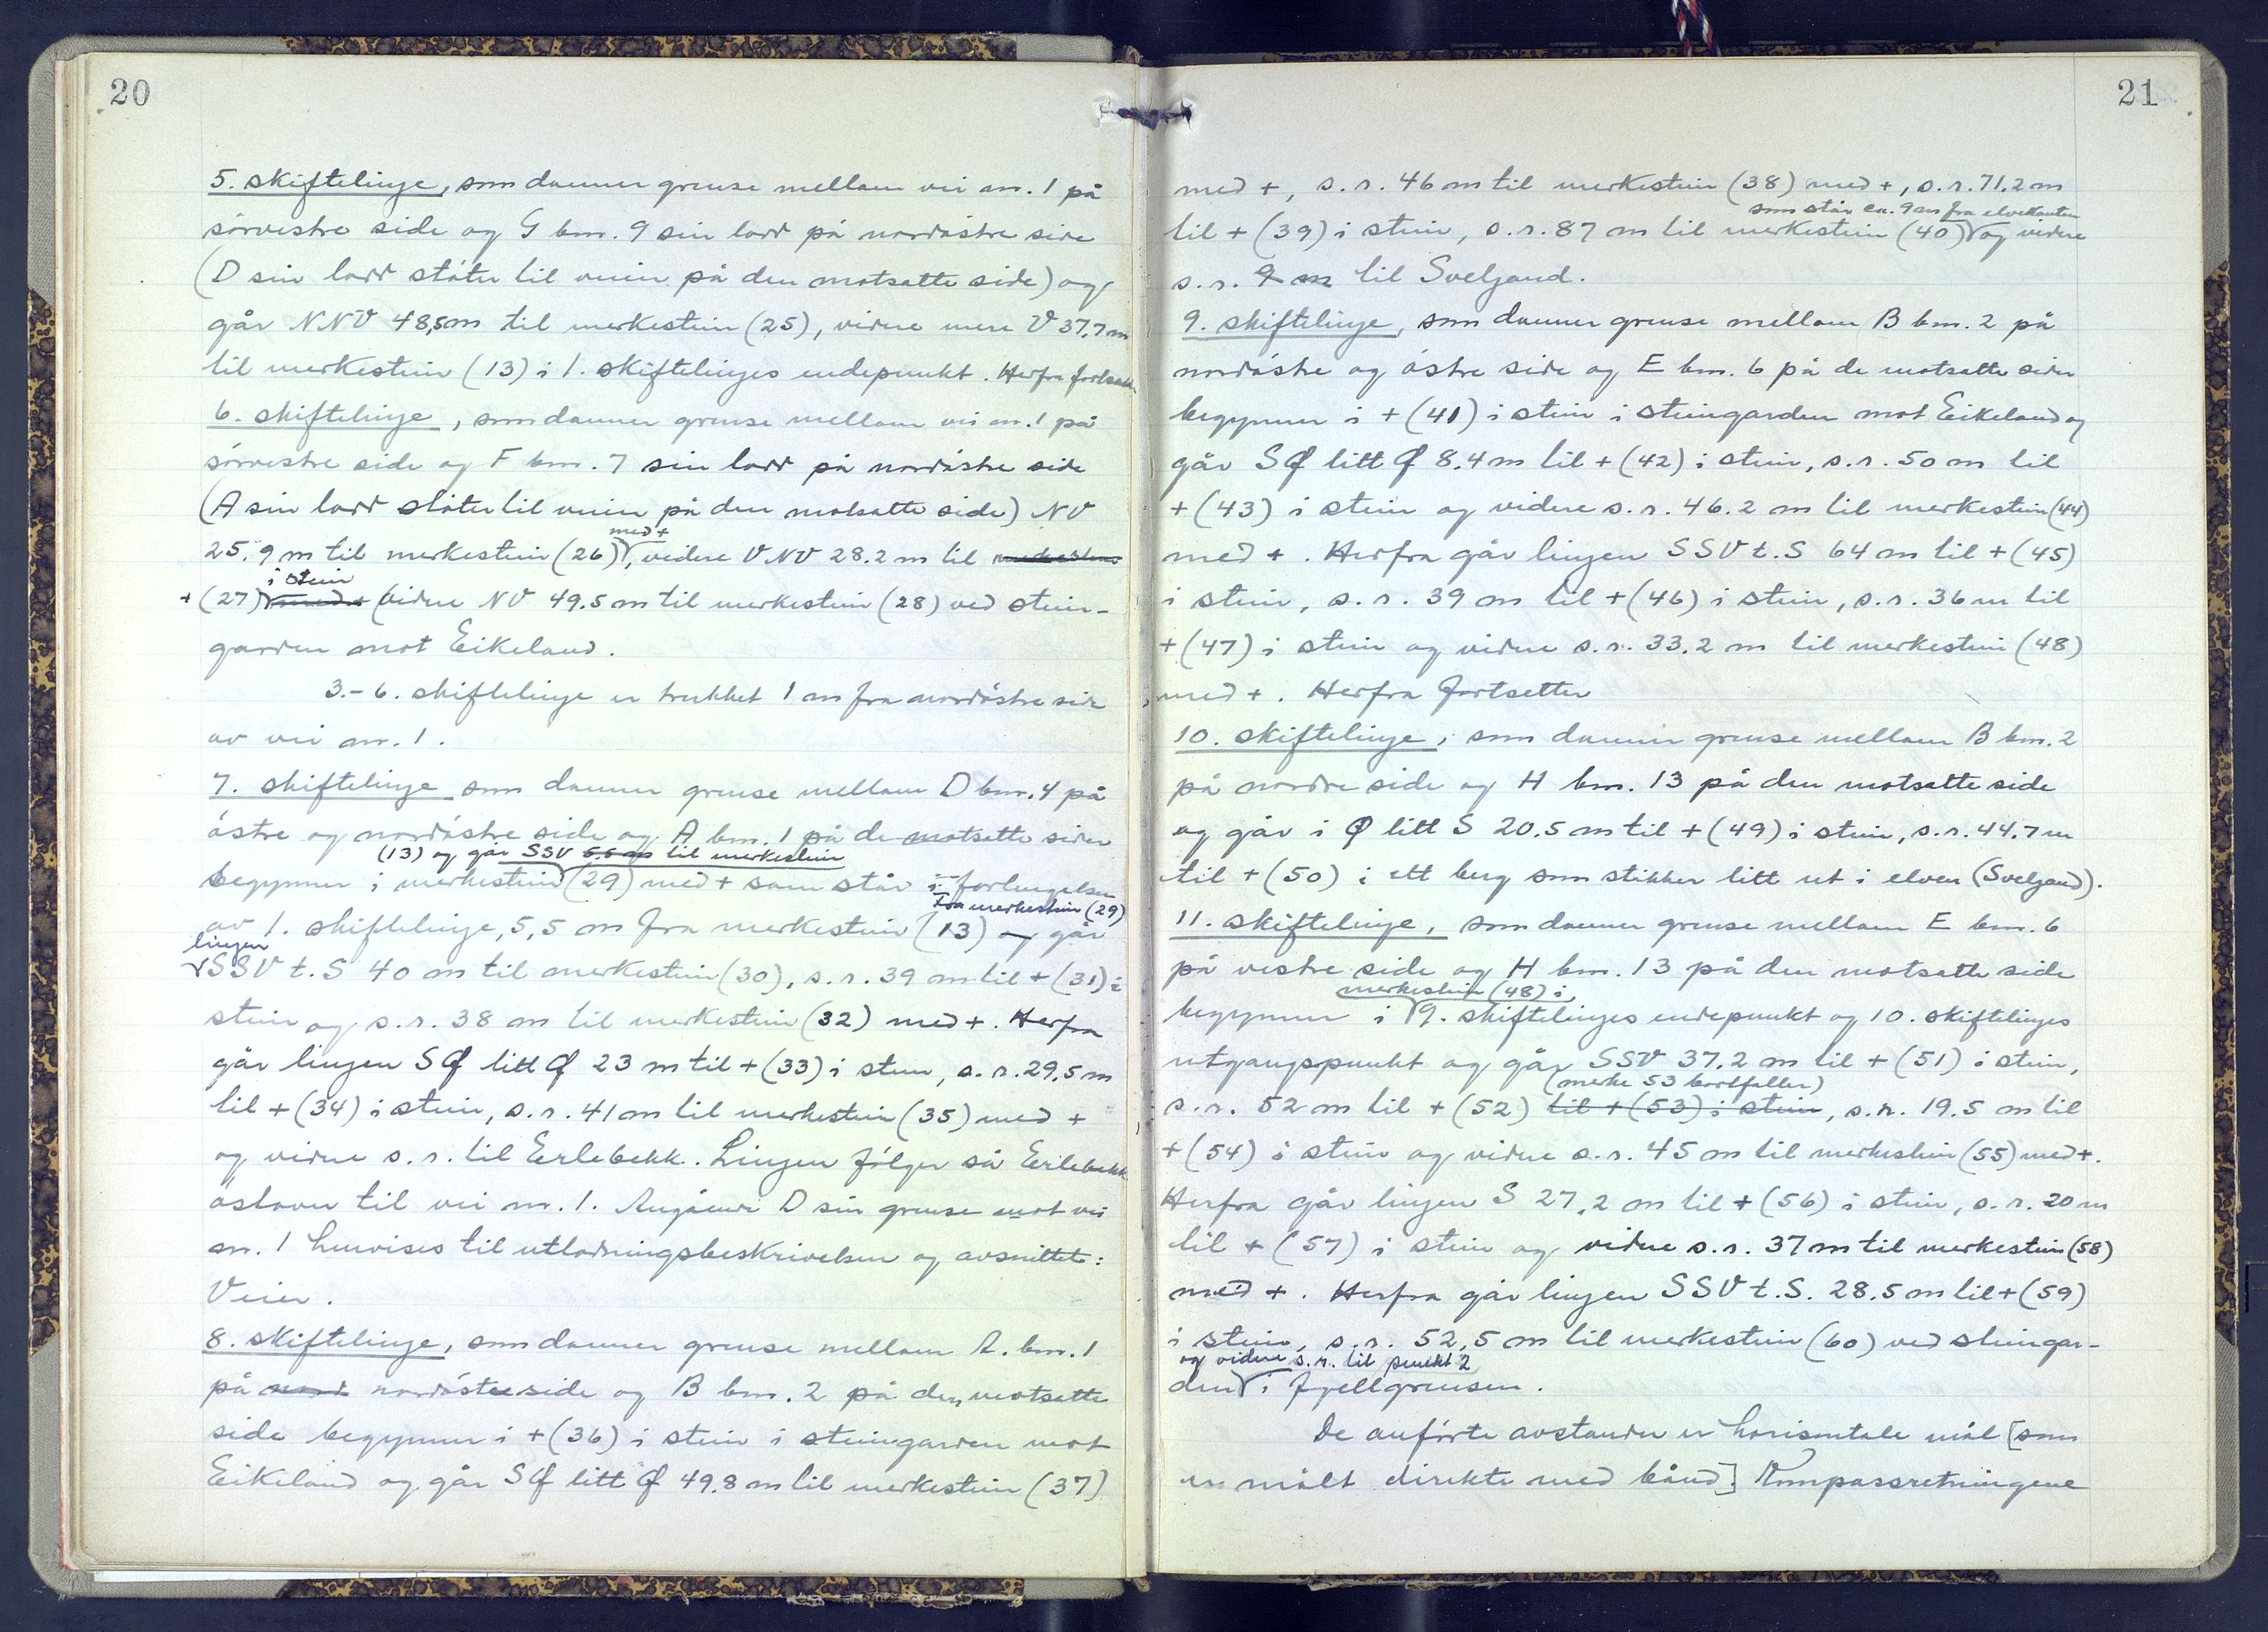 20
5. skiftelinje, som danner grense mellom vei nr. 1 på
sörvestre side og G bnr. 9 sin lodd på nordöstre side
(D sin lodd stöter til veien på den motsatte side) og
går NNV 48,5m til merkestein (25), videre mere V 37.7 m
til merkestein (13) i 1. skiftelinjes endepunkt. Herfra fortsetter
6. skiftelinje, som danner grense mellom vei nr. 1 på
sörvestre side og F bnr. 7 sin lodd på nordöstre side
(A sin lodd stöter til veien på den motsatte side) NV
med +
25.9 m til merkestein (26), videre VNV 28.2 m til merkestein
i stein
+ (27) med + videre NV 49.5 m til merkestein (28) ved stein-
garden mot Eikeland.
3.-6. skiftelinje er trukket 1 m fra nordöstre side
av vei nr. 1.
7. skiftelinje som danner grense mellom D bnr. 4 på
östre og nordöstre side og A bnr. 1 på de motsatte sider
(13) og går SSV 5.5 m til merkestein
begynner i merkestein (29) med + som står i forlengelsen
Fra merkestein (29)
av 1. skiftelinje, 5,5 m fra merkestein (13) og går
linjen
SSV t. S 40 m til merkestein (30), s.r. 39 m til + (31) i
stein og s.r. 38 m til merkestein (32) med +. Herfra
går linjen SØ litt Ø 23 m til + (33) i stein, s.r. 29,5 m
til + (34) i stein, s.r. 41 m til merkestein (35) med +
og videre s.r. til Erlebekk. Linjen fölger så Erlebekk
östover til vei nr. 1. Angående D sin grense mot vei
nr. 1 henvises til utlodningsbeskrivelsen og avsnittet:
Veier.
8. skiftelinje, som danner grense mellom A. bnr. 1
på nord nordöstre side og B bnr. 2 på den motsatte
side begynner i + (36) i stein i steingarden mot
Eikeland og går SØ litt Ø 49.8 m til merkestein (37)
21
med +, s.r. 46 m til merkestein (38) med +, s.r. 71.2 m
som står ca. 9 m fra elvekanten
til + (39) i stein, s.r. 87 m til merkestein (40) og videre
s.r. 9 m til Sveljaand.
9. skiftelinje, som danner grense mellom B bnr. 2 på
nordöstre og östre side og E bnr. 6 på de motsatte sider
begynner i + (41) i stein i steingarden mot Eikeland og
går SØ litt Ø 8.4 m til + (42) i stein, s.r. 50 m til
+ (43) i stein og videre s.r. 46.2 m til merkestein (44)
med +. Herfra går linjen SSV t. S 64 m til + (45)
i stein, s.r. 39 m til + (46) i stein, s.r. 36 m til
+ (47) i stein og videre s.r. 33.2 m til merkestein (48)
med +. Herfra fortsetter
10. skiftelinje, som danner grense mellom B bnr. 2
på nordre side og H bnr. 13 på den motsatte side
og går i Ø litt S 20.5 m til + (49) i stein, s.r. 44.7 m
til + (50) i ett berg som stikker litt ut i elven (Sveljaand).
11. skiftelinje, som danner grense mellom E bnr. 6
på vestre side og H bnr. 13 på den motsatte side
merkestein (48) i
begynner i 9. skiftelinjes endepunkt og 10. skiftelinjes
utgangspunkt og går SSV 37.2 m til + (51) i stein,
(merke 53 bortfaller)
s.r. 52 m til + (52) til + (53) i stein, s.r. 19.5 m til
+ (54) i stein og videre s.r. 45 m til merkestein (55) med +.
Herfra går linjen S 27.2 m til + (56) i stein, s.r. 20 m
til + (57) i stein og videre s.r. 37 m til merkestein (58)
med +. Herfra går linjen SSV t. S. 28.5 m til + (59)
i stein, s.r. 52,5 m til merkestein (60) ved steingar-
og videre s.r. til punkt 2
den i fjellgrensen.
De anförte avstander er horisontale mål [som
er målt direkte med bånd]. Kompassretningene